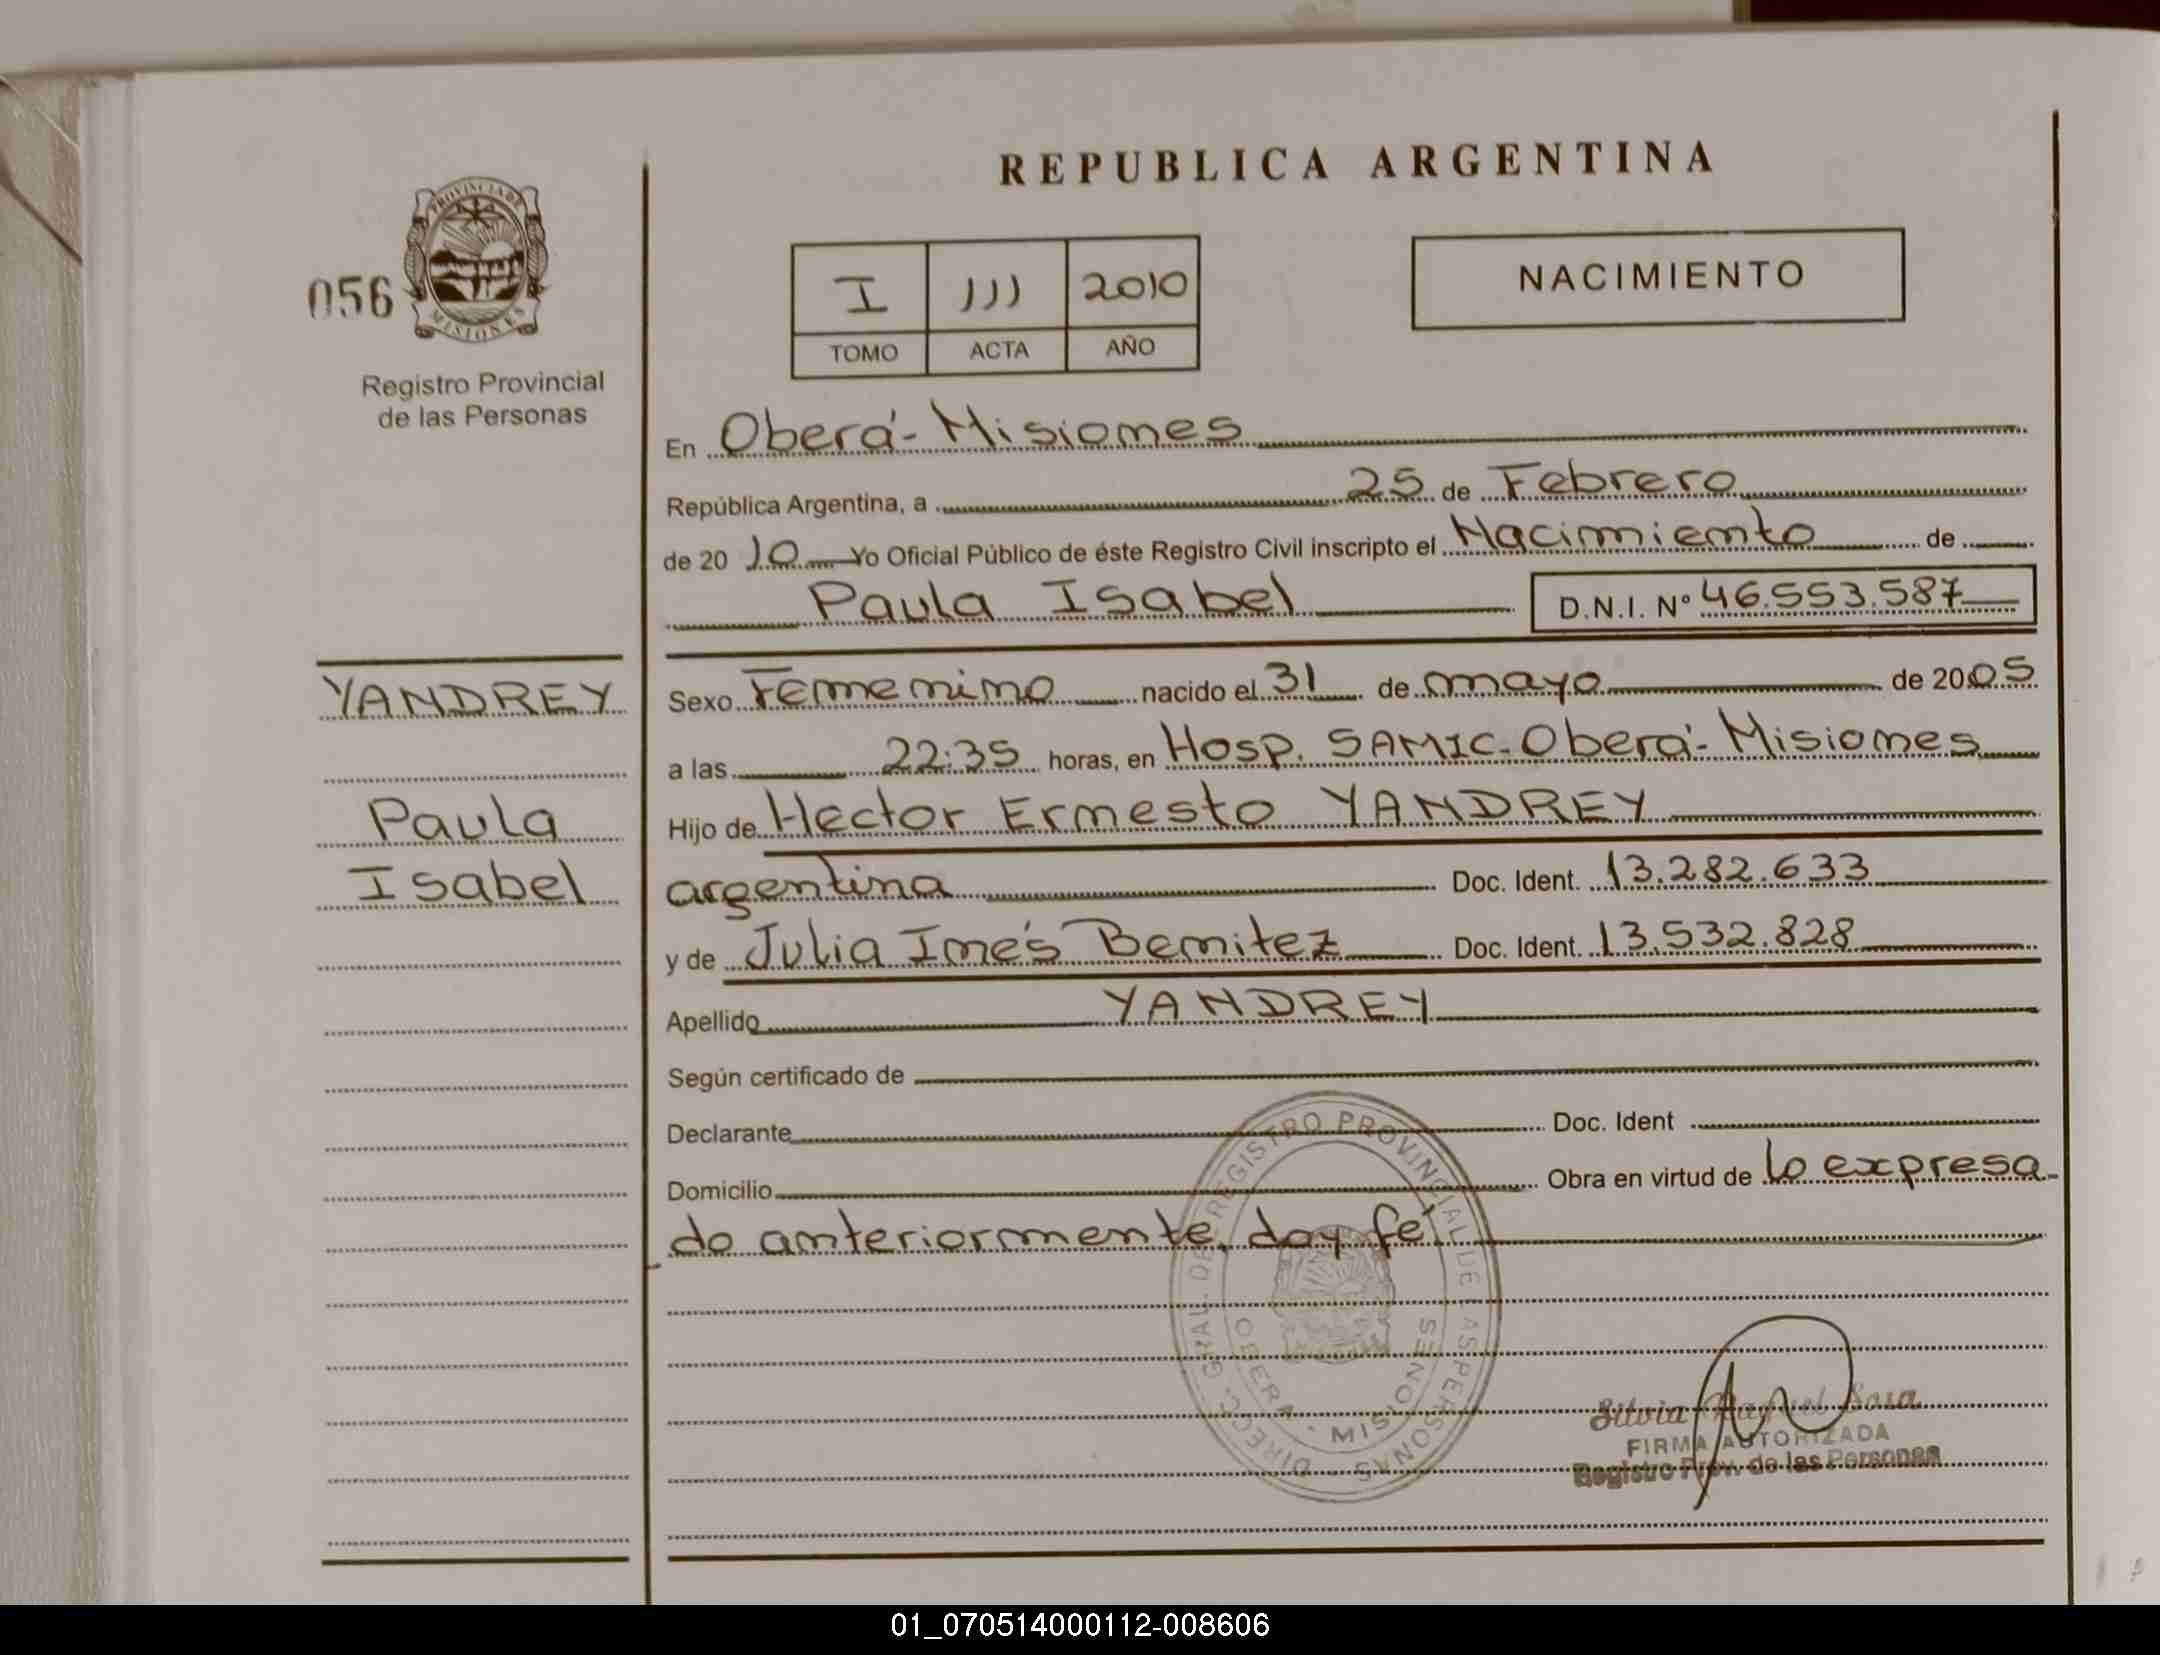 REPUBLICA ARGENTINA
056
PROVINCIA DE
MISIONES
Registro Provincial
de las Personas
I 111 2010
TOMO ACTA AÑO
NACIMIENTO
En Oberá - Misiones
República Argentina, a 25 de Febrero
de 20 10 Yo Oficial Público de éste Registro Civil inscripto el Nacimiento de
Paula Isabel D.N.I. Nº 46.553.587
YANDREY
Paula
Isabel
Sexo Femenino nacido el 31 de mayo de 2005
a las 22:35 horas, en Hosp. SAMIC - Oberá - Misiones
Hijo de Hector Ernesto YANDREY
argentina Doc. Ident. 13.282.633
y de Julia Inés Benitez Doc. Ident. 13.532.828
Apellido YANDREY
Según certificado de
Declarante Doc. Ident
Domicilio Obra en virtud de lo expresa-
do anteriormente, doy fé
DIRECC. GRAL. DE REGISTRO PROVINCIAL DE LAS PERSONAS
OBERA - MISIONES
Silvia Raquel Sosa
FIRMA AUTORIZADA
Registro Prov. de las Personas
01_070514000112-008606